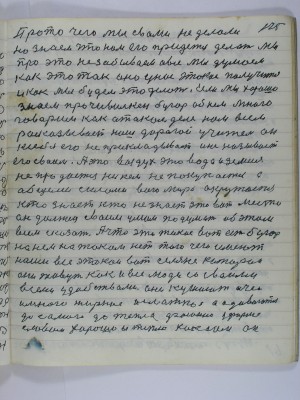 125
Про то чего мы с вами не делали
но знаем это нам его придется делать мы
про это не забываем а вот мы думаем
как это так оно у нас это все получится
и как мы будем это делать. Если мы хорошо
знаем про человеческий бугор об нем много
говорим как о таком деле нам всем
рассказывает наш дорогой учитель он
не себя его не прикладывает а не называет
его своем. А это воздух это вода и земля
не продается никем не покупается а
общими силами вот мире окружается
кто знает кто не знает это вот место
он должен своим умом подумать об этом
всем сказать. А что это такое вот есть бугор
на нем на таком нет того чего имеют
наши все это как вот семье которая
они живут как и все люди со своими
всеми удобствами они кушают и чем
много жирное и сладкое а одеваются
до самого до тепла хорошо и форме
словами хорошо и тепло а он